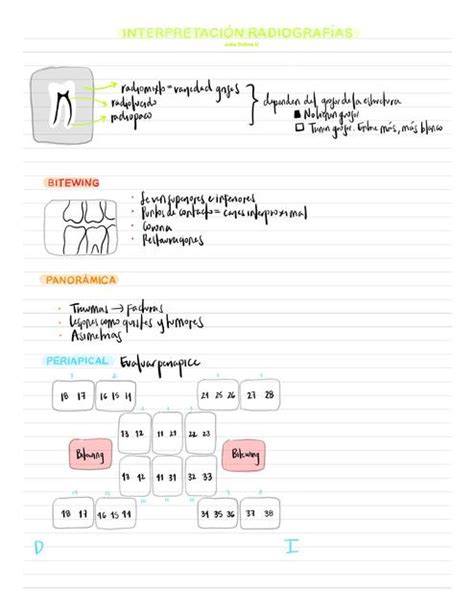 INTERPRETACIÓN RADIOGRAFÍAS
radiomixto = variedad grises
radiolucido
radiopaco
dependen del grosor de la estructura
No tienen grosor
Tienen grosor. Entre más, más blanco
BITEWING
Se ven superiores e inferiores
Puntos de contacto = caries interproximal
Corona
Restauraciones
PANORÁMICA
Traumas → Facturas
Lesiones como quistes y tumores
Asimetrías
PERIAPICAL Evaluar periapice
18 17 16 15 14 24 25 26 27 28
13 12 11 21 22 23
Bitewing Bitewing
11 31 32 33
18 17 16 15 14 34 35 36 37 38
D I